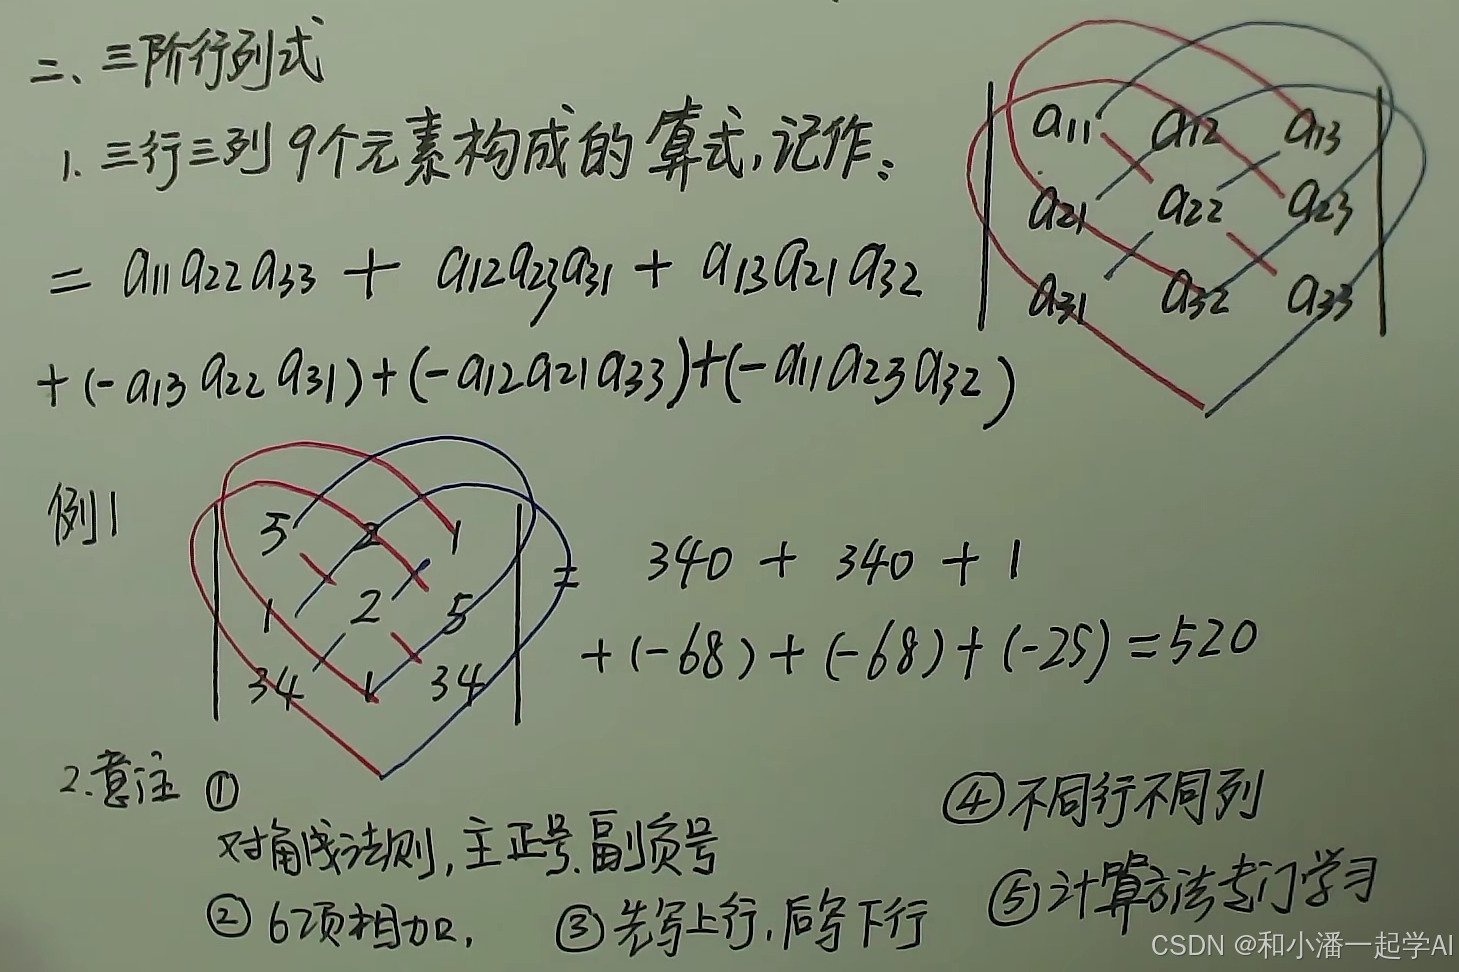 二、三阶行列式
1. 三行三列9个元素构成的算式,记作:
a11 a12 a13
a21 a22 a23
a31 a32 a33
= a11a22a33 + a12a23a31 + a13a21a32
+(-a13a22a31)+(-a12a21a33)+(-a11a23a32)
例1
5 2 1
1 2 5
34 1 34
= 340 + 340 + 1
+(-68)+(-68)+(-25)=520
2.意注 ①
对角线法则,主正号、副负号
② 6项相加, ③先写上行,后写下行
④不同行不同列
⑤计算方法专门学习
CSDN @和小潘一起学AI